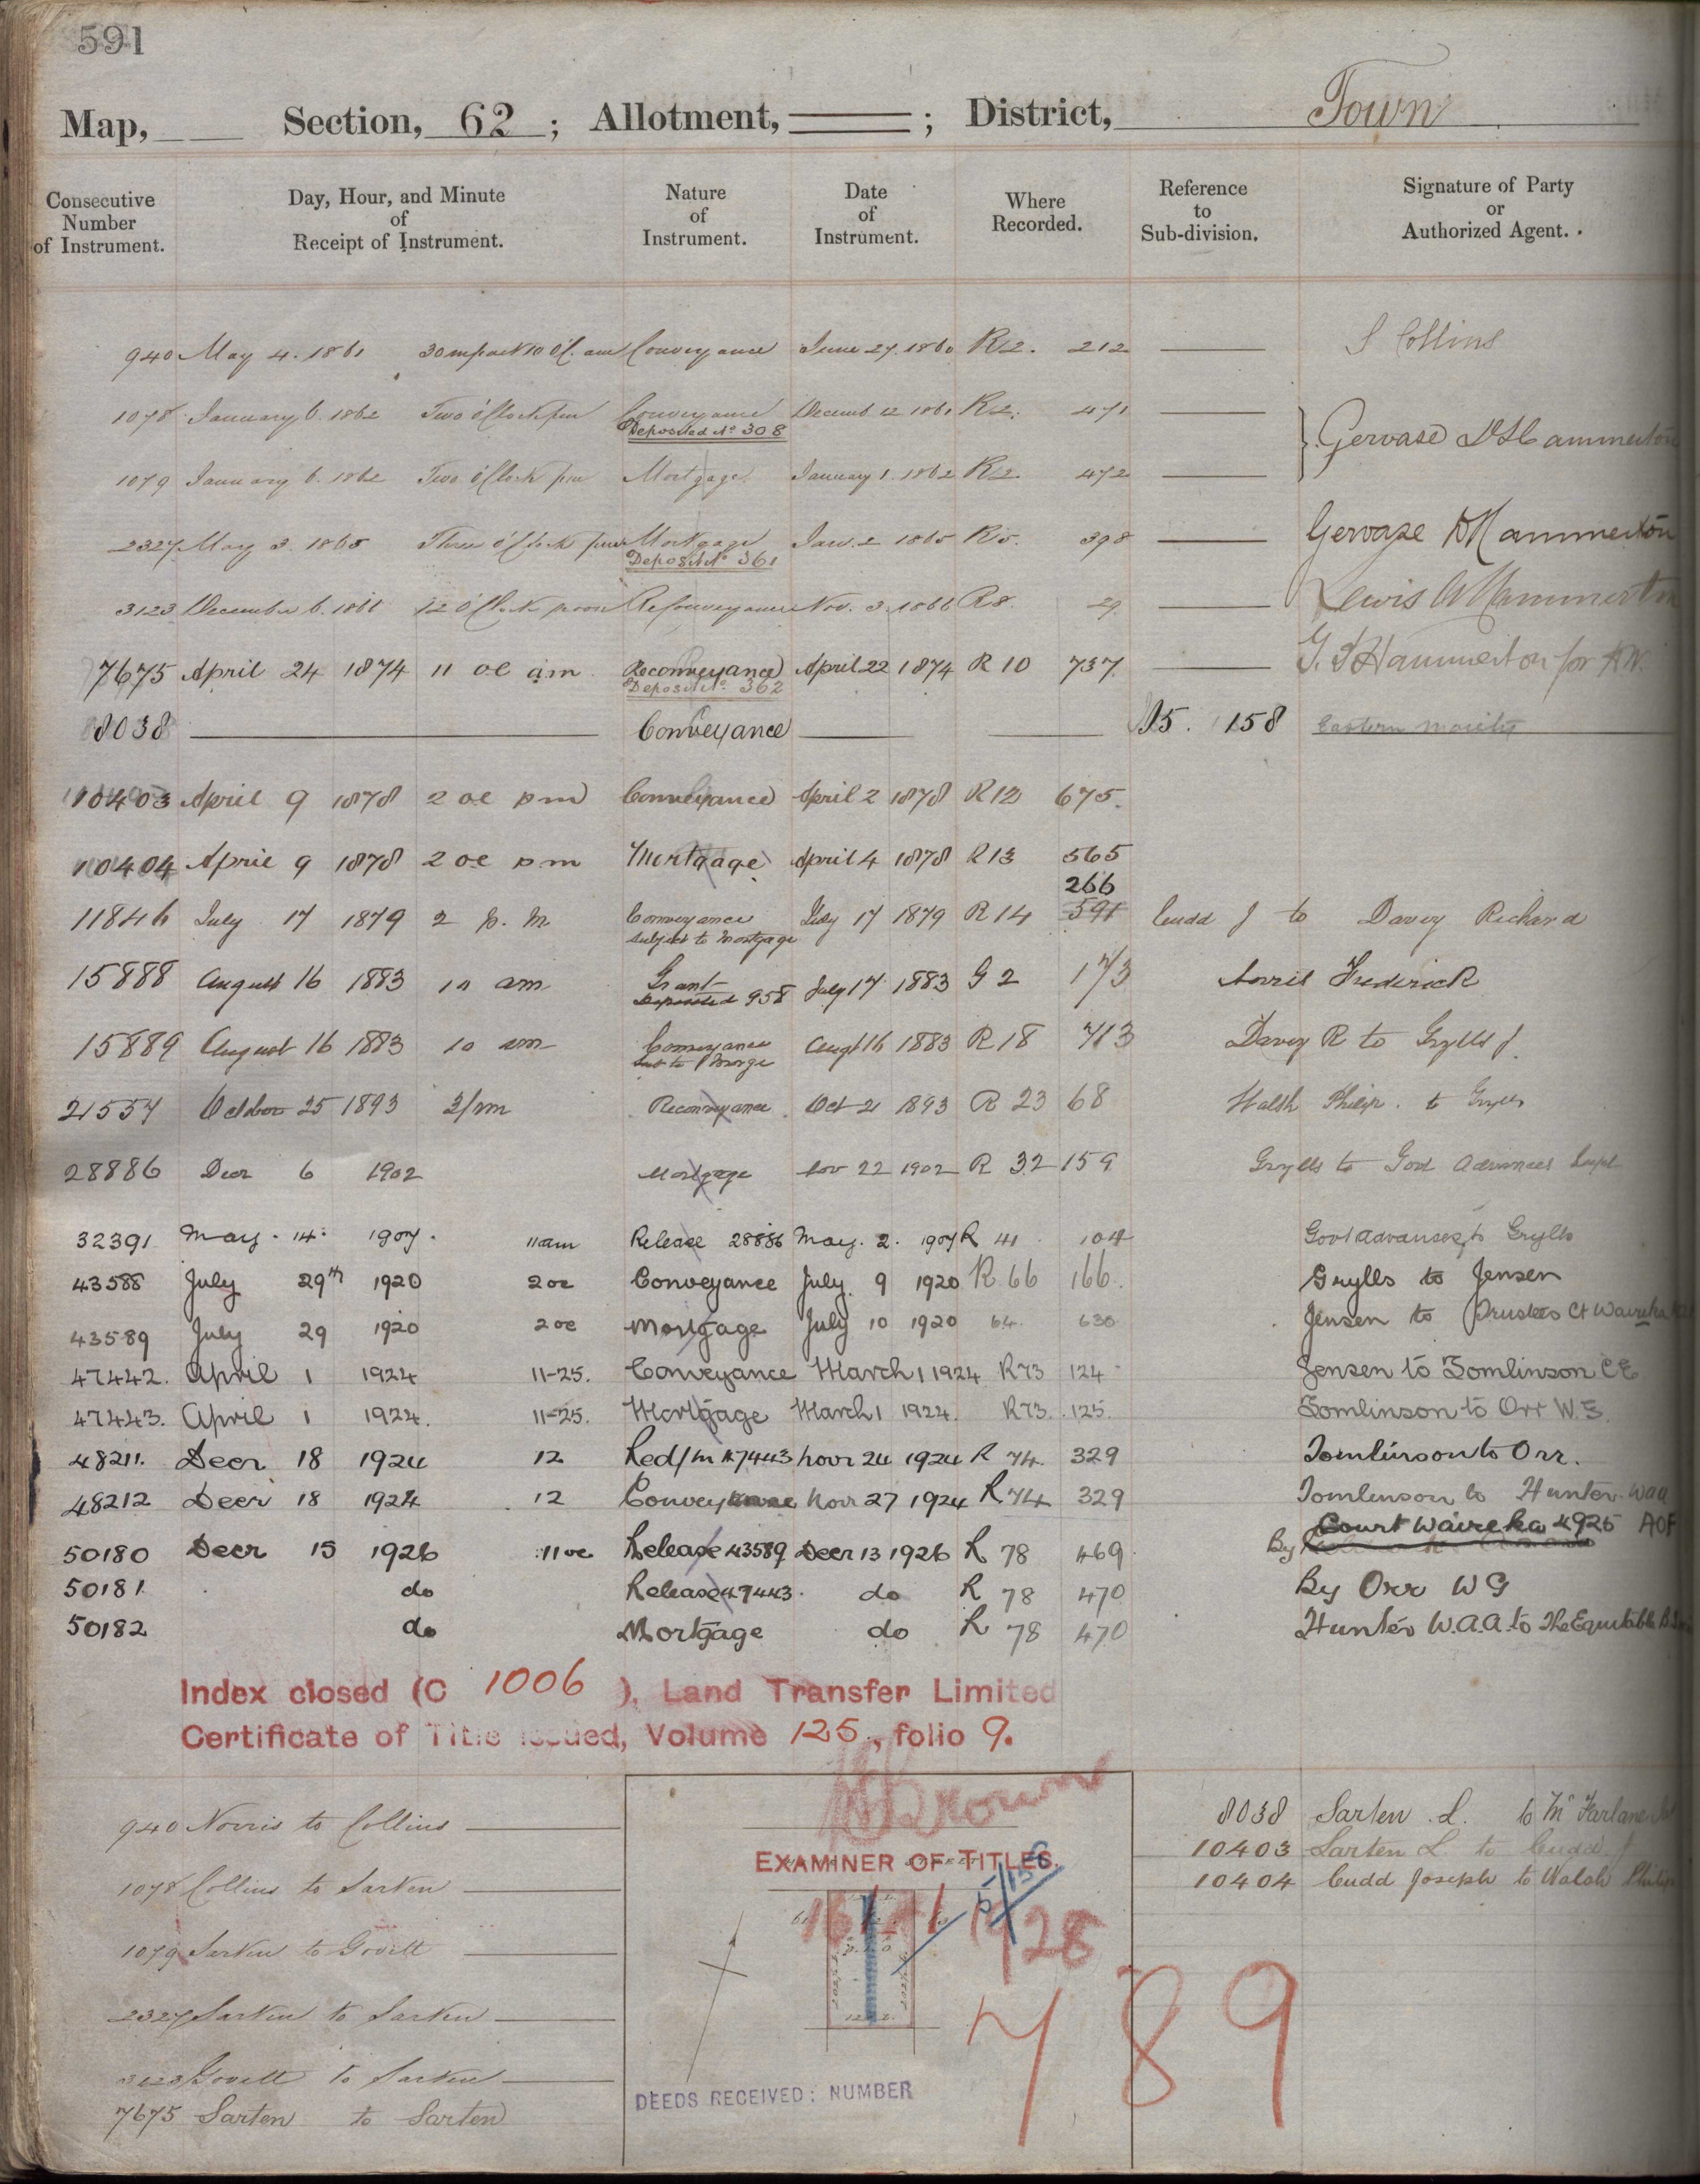 591
Map, Section, 62 ; Allotment, ; District, Town
Consecutive Number of Instrument.
Day, Hour, and Minute of Receipt of Instrument.
Nature of Instrument.
Date of Instrument.
Where Recorded.
Reference to Sub-division.
Signature of Party or Authorized Agent.
940 May 4. 1861 30 m past 10 O'C. am Conveyance June 27. 1860 R2. 212 S Collins
1078 January 6. 1862 Two o'Clock pm Conveyance Decemb 12 1861 R2. 471
Deposited No 308
Gervase Hammerton
1079 January 6. 1862 Two o'Clock pm Mortgage January 1. 1862 R2. 472
2327 May 3. 1865 Three o'Clock pm Mortgage Jan. 2 1865 R5. 398 Gervase Hammerton
Deposit No 361
3123 December 6. 1866 12 o'Clock noon Reconveyance Nov. 3. 1866 R8. 29 Lewis Hammerton
7675 April 24 1874 11 oc am Reconveyance April 22 1874 R 10 737 Hammerton for
Deposit No 362
8038 Conveyance 15. 158 Eastern moiety
10403 April 9 1878 2 oc pm Conveyance April 2 1878 R 12 675.
10404 April 9 1878 2 oc pm Mortgage April 4 1878 R 13 565
266
11846 July 17 1879 2 p. m Conveyance July 17 1879 R 14 591 Cudd J to Davey Richard
subject to Mortgage
15888 August 16 1883 10 am Grant July 17 1883 G 2 173 Norris Frederick
Deposited 958
15889 August 16 1883 10 am Conveyance Augt 16 1883 R 18 713 Davey R to Grylls J.
Sub to Morge
21557 October 25 1893 3/pm Reconveyance Oct 21 1893 R 23 68 Walsh Philip. to Grylls
28886 Decr 6 1902 Mortgage Nov 22 1902 R 32 159 Grylls to Govt Advances Supt
32391 May 14 1907. 11am Release 28886 May. 2. 1907 R 41 104 Govt Advances to Grylls
43588 July 29th 1920 2 oc Conveyance July 9 1920 R. 66 166. Grylls to Jensen
43589 July 29 1920 2 oc Mortgage July 10 1920 64. 630 Jensen to Trustees Ct Waireka
47442. April 1 1924 11-25. Conveyance March 1 1924 R73 124 Jensen to Tomlinson C E
47443. April 1 1924. 11-25. Mortgage March 1 1924. R73. 125. Tomlinson to Orr W. G.
48211. Decr 18 1924 12 Red/m 47443 Novr 24 1924 R 74. 329 Tomlinson to Orr.
48212 Decr 18 1924 12 Conveyance Novr 27 1924 R 74 329 Tomlinson to Hunter. WAA
Court Waireka 4925 AOF
50180 Decr 15 1926 11 oc Release 43589 Decr 13 1926 R 78 469 By
50181. do Release 47443. do R 78 470 By Orr W G
50182 do Mortgage do R 78 470 Hunter W.A.A. to The Equitable B
Index closed (C 1006 ), Land Transfer Limited
Certificate of Title issued, Volume 125., folio 9.
Brown
EXAMINER OF TITLES.
1928
940 Norris to Collins
1078 Collins to Sarten
1079 Sarten to Govett
2327 Sarten to Sarten
3123 Govett to Sarten
7675 Sarten to Sarten
8038 Sarten. L. to McFarlane
10403 Sarten L. to Cudd J
10404 Cudd Joseph to Walsh Philip
DEEDS RECEIVED: NUMBER
789